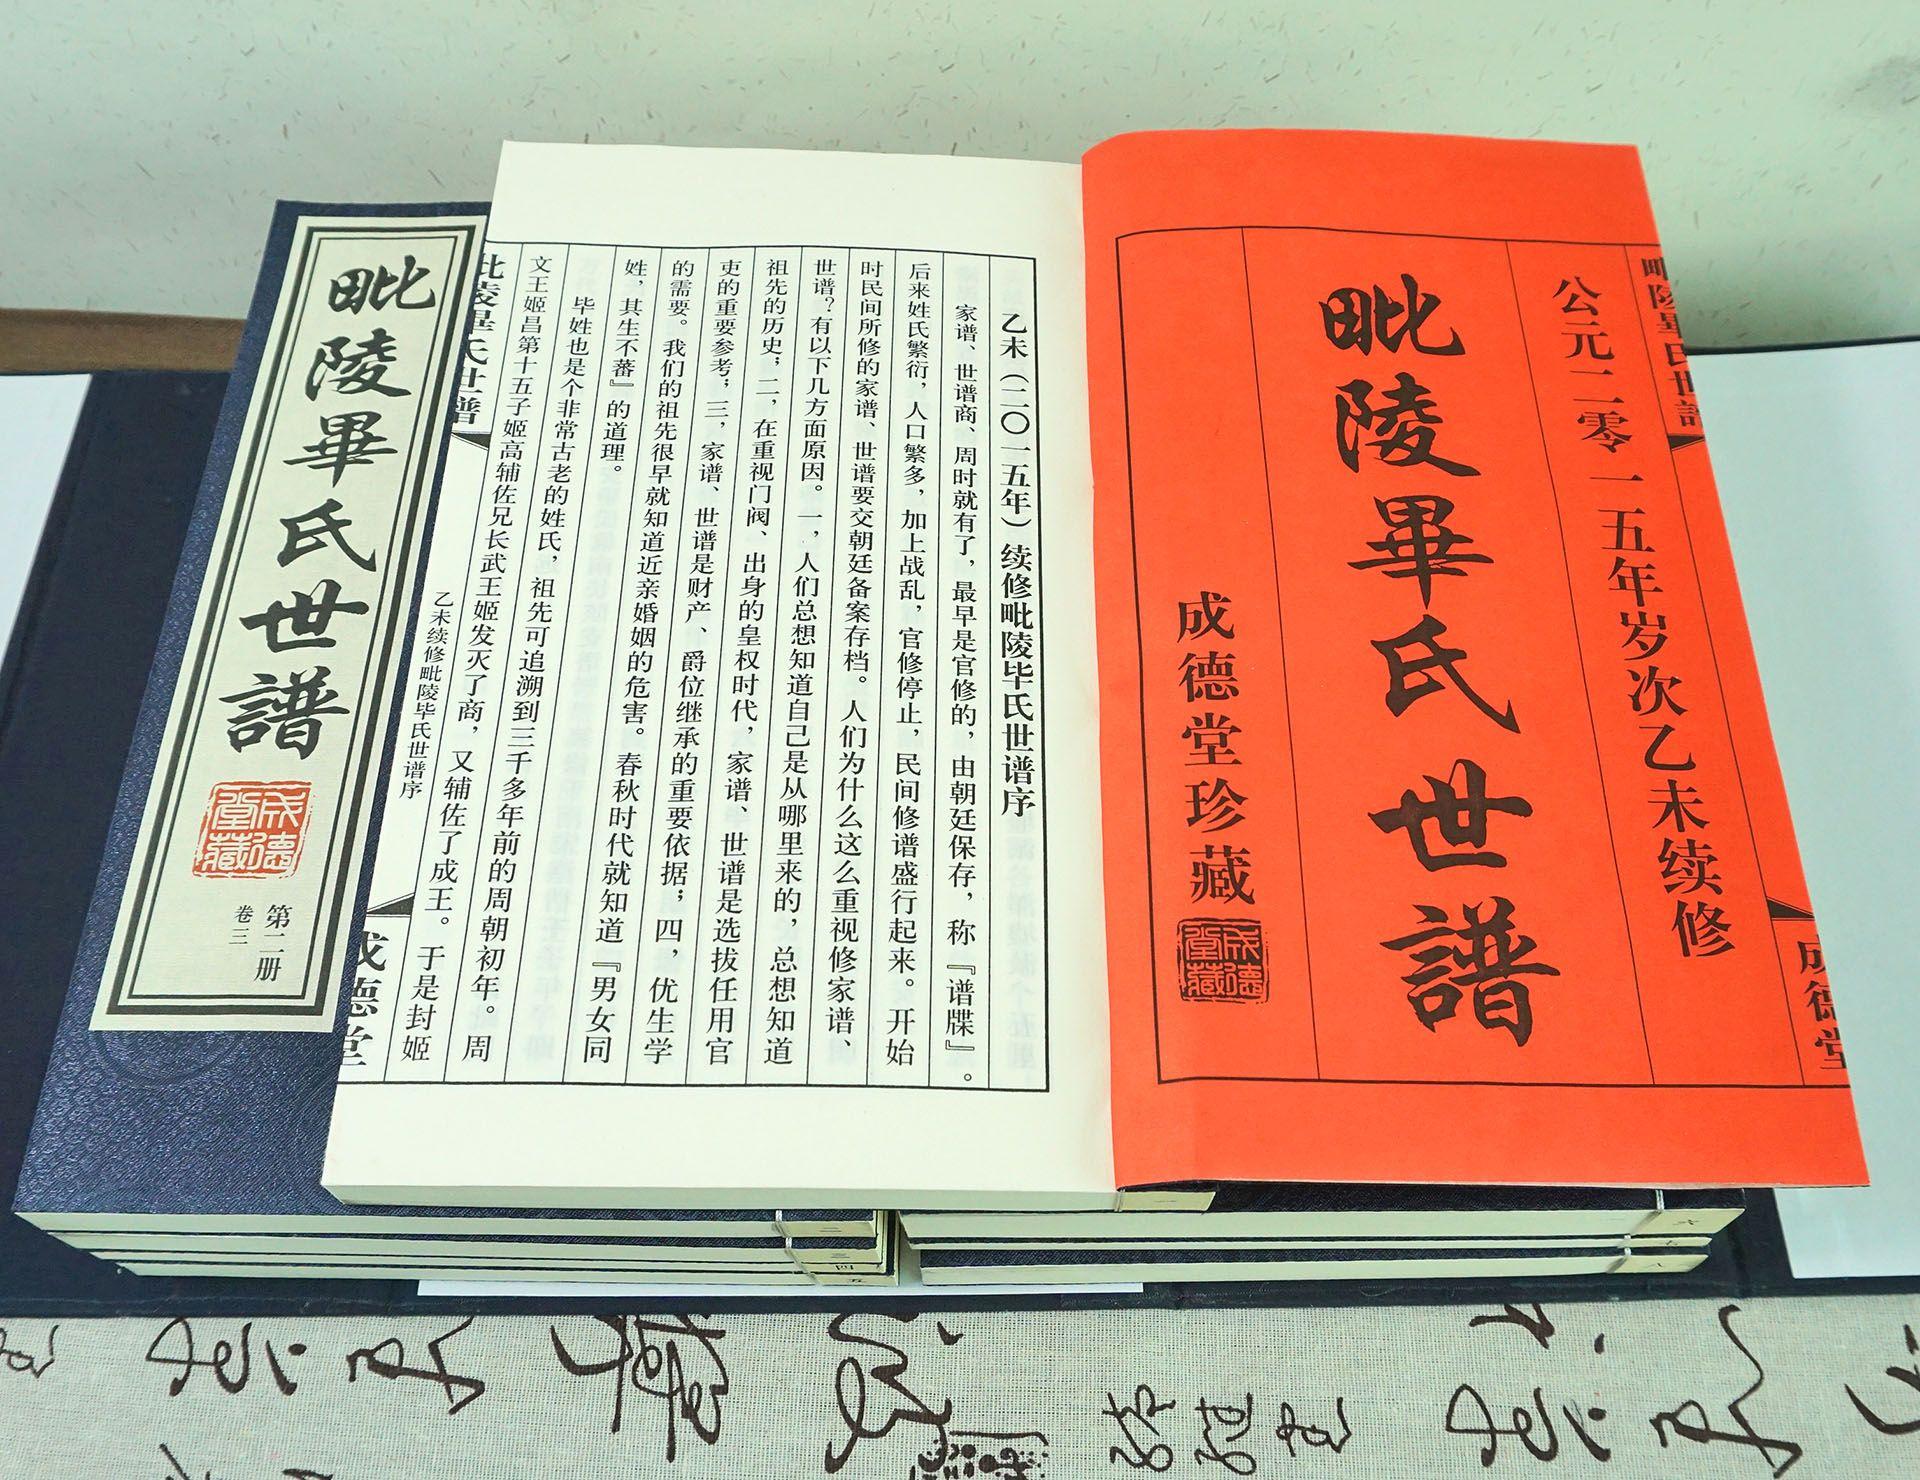 毗陵畢氏世譜
公元二零一五年岁次乙未续修
毗陵畢氏世譜
成德堂珍藏
成德堂藏
成德堂
乙未（二〇一五年）续修毗陵毕氏世谱序
家谱、世谱商、周时就有了，最早是官修的，由朝廷保存，称『谱牒』。
后来姓氏繁衍，人口繁多，加上战乱，官修停止，民间修谱盛行起来。开始
时民间所修的家谱、世谱要交朝廷备案存档。人们为什么这么重视修家谱、
世谱？有以下几方面原因。一，人们总想知道自己是从哪里来的，总想知道
祖先的历史；二，在重视门阀、出身的皇权时代，家谱、世谱是选拔任用官
吏的重要参考；三，家谱、世谱是财产、爵位继承的重要依据；四，优生学
的需要。我们的祖先很早就知道近亲婚姻的危害。春秋时代就知道『男女同
姓，其生不蕃』的道理。
毕姓也是个非常古老的姓氏，祖先可追溯到三千多年前的周朝初年。周
文王姬昌第十五子姬高辅佐兄长武王姬发灭了商，又辅佐了成王。于是封姬
毗陵畢氏世譜
乙未续修毗陵毕氏世谱序
成德堂
毗陵畢氏世譜
成德堂藏
第二册
卷三
一
二
三
四
五
六
七
八